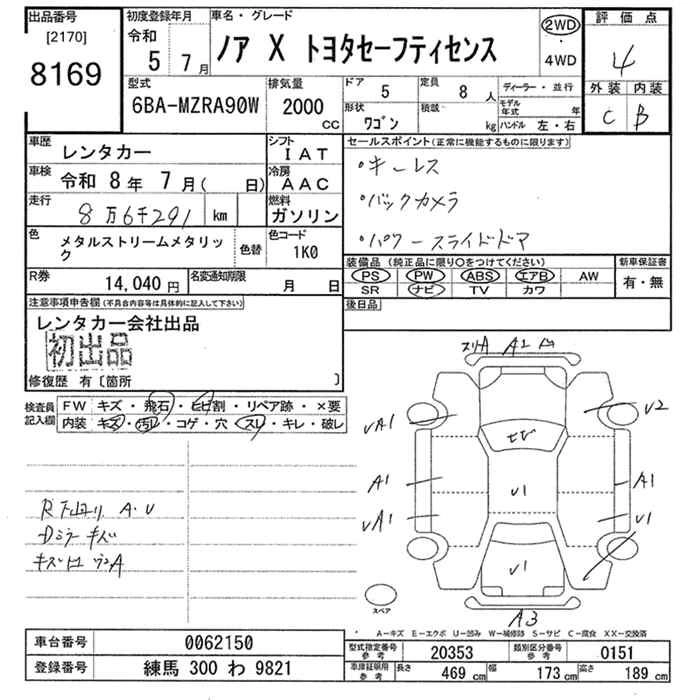 出品番号 [2170] 8169
初度登録年月 令和 5年 7月
車名・グレード ノア X トヨタセーフティセンス
2WD ・ 4WD
評価点 4
外装 C 内装 B
型式 6BA-MZRA90W
排気量 2000 CC
ドア 5
定員 8人
形状 ワゴン
積載 kg
ディーラー・並行
モデル年式 年
ハンドル 左・右
車歴 レンタカー
シフト IAT
車検 令和 8年 7月( 日)
冷房 AAC
走行 8万6千291 km
燃料 ガソリン
色 メタルストリームメタリック
色替
色コード 1K0
R券 14,040円
名変通知期限 月 日
セールスポイント(正常に機能するものに限ります)
・キーレス
・バックカメラ
・パワースライドドア
装備品(純正品に限り○をつけてください)
PS PW ABS エアB AW
SR ナビ TV カワ
新車保証書 有・無
後日品
注意事項申告欄(不具合内容等は具体的に記入して下さい)
レンタカー会社出品
初出品
修復歴 有〔箇所 〕
検査員記入欄
FW キズ・飛石・ヒビ割・リペア跡・×要
内装 キズ・汚レ・コゲ・穴・スレ・キレ・破レ
A.U
Dミラーキズ
スリA A1
UA1
U2
A1
A1
UA1
U1
U1
U1
A3
スペア
A−キズ E−エクボ U−凹み W−補修跡 S−サビ C−腐食 XX−交換済
車台番号 0062150
登録番号 練馬 300 わ 9821
型式指定番号 参考 20353
類別区分番号 参考 0151
車庫証明用 参考 長さ 469 cm 幅 173 cm 高さ 189 cm